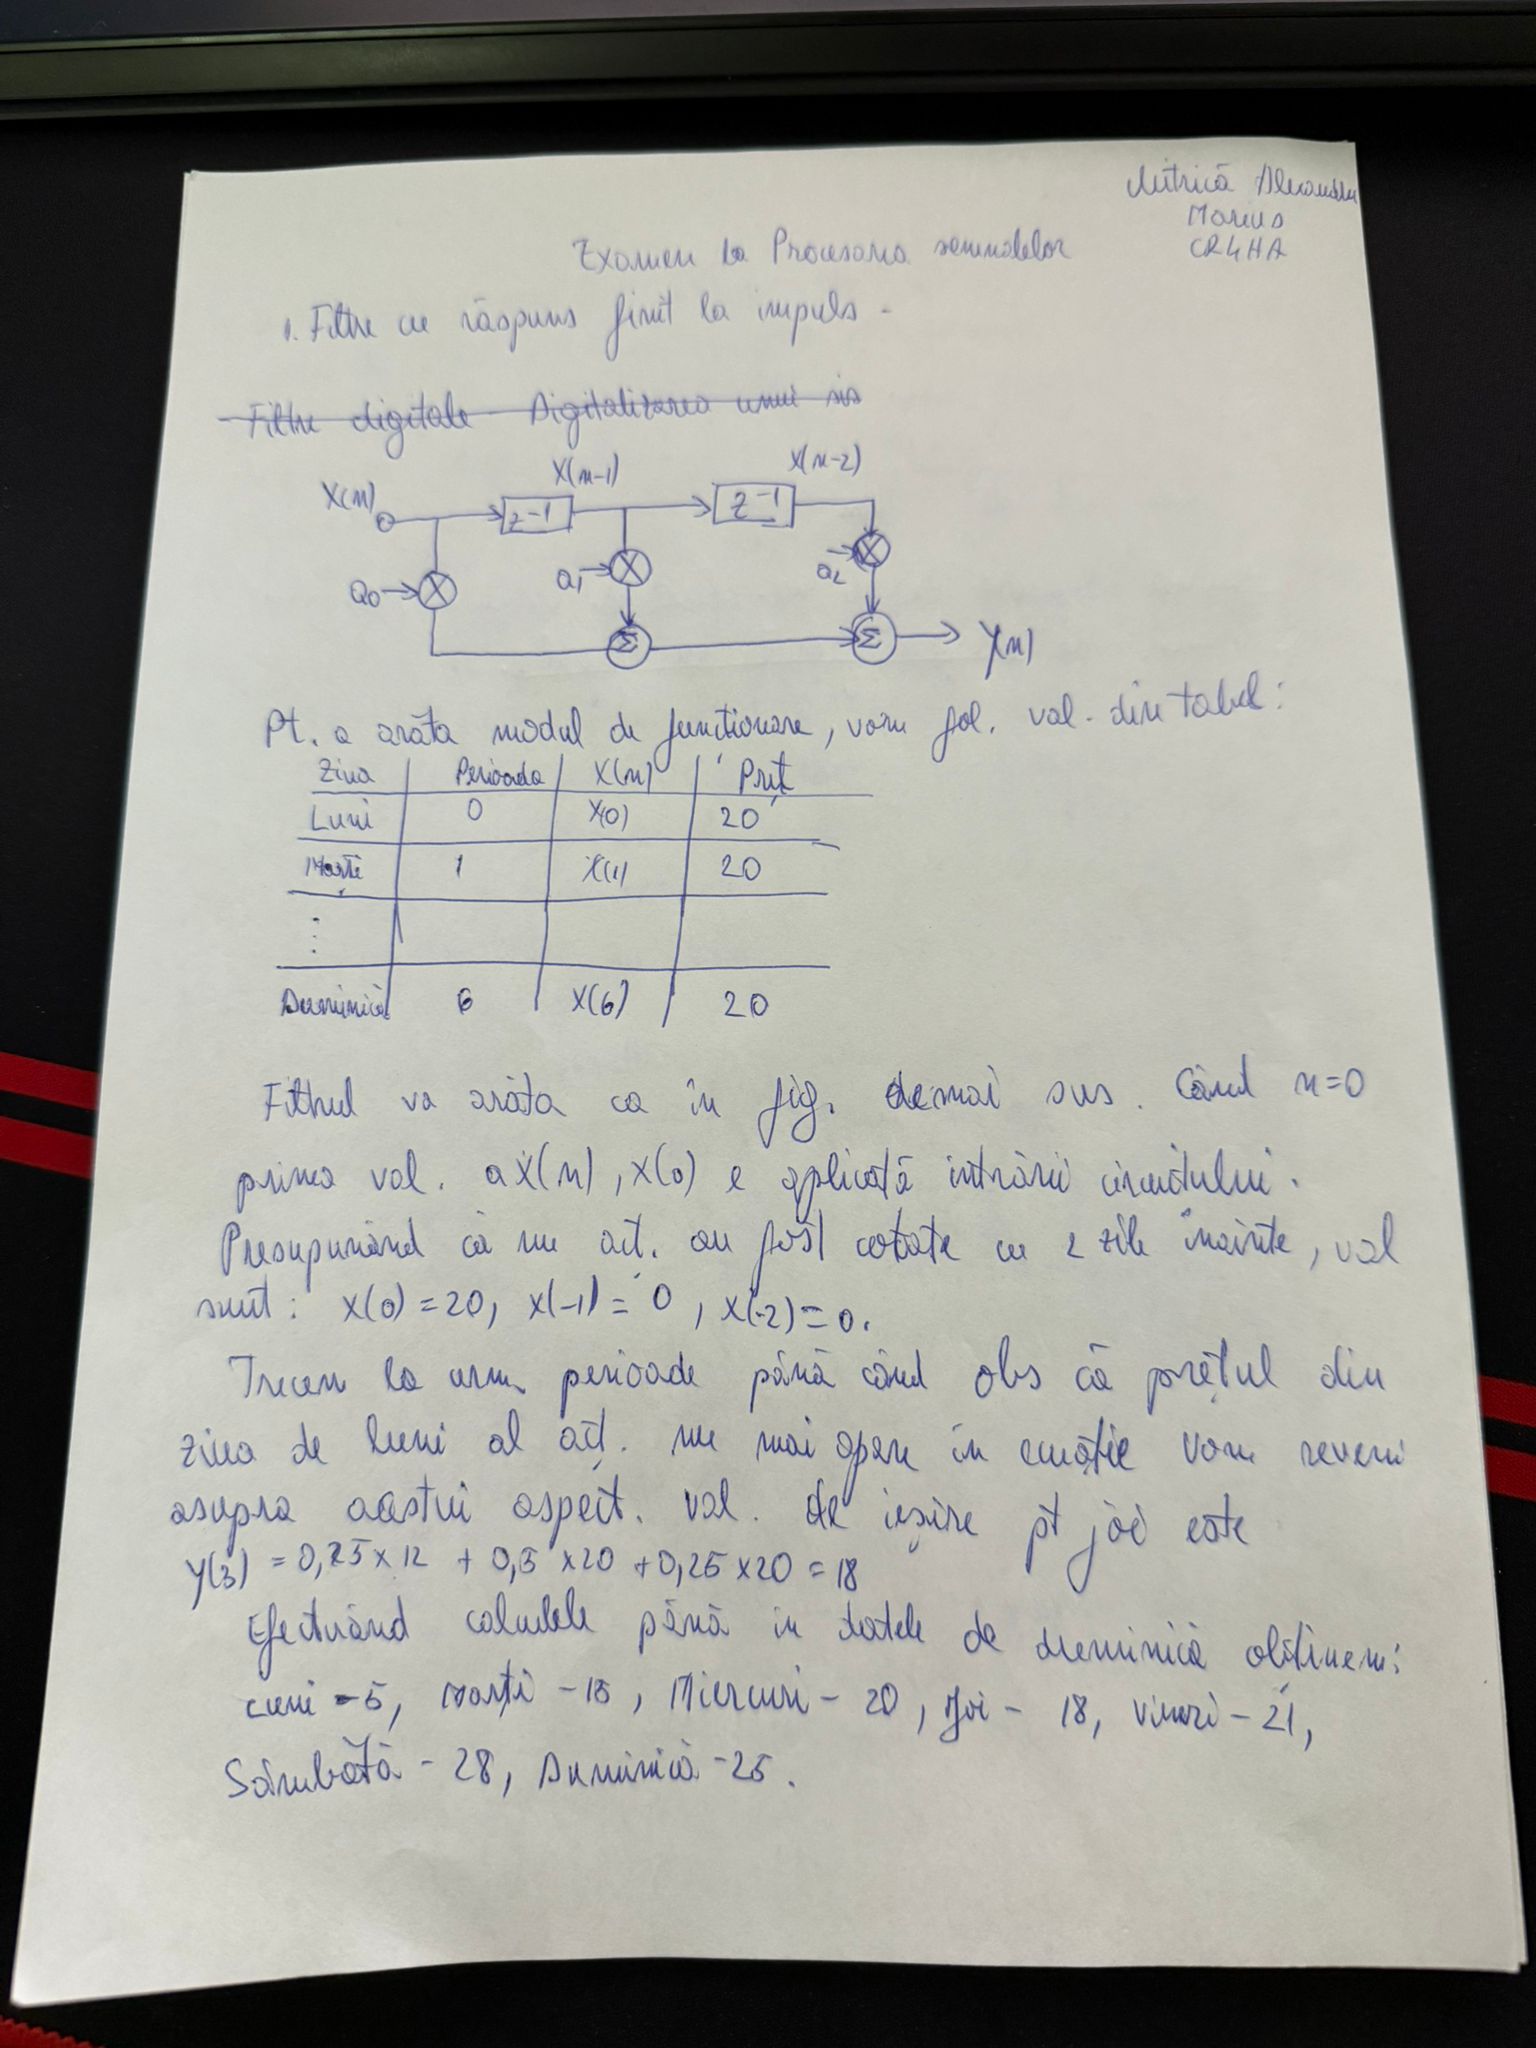 Mitrică Alexandru
Marius
CR4HA
Examen la Procesarea semnalelor
1. Filtre cu răspuns finit la impuls -
Filtre digitale - Digitalizarea unui sis
X(n) X(n-1) X(n-2)
z-1 z-1
a0 X a1 X a2 X
Σ Σ Y(n)
Pt. a arăta modul de funcționare, vom fol. val. din tabel:
Ziua Perioada X(n) Preț
Luni 0 X(0) 20
Marți 1 X(1) 20
⋮
Duminică 6 X(6) 20
Filtrul va arăta ca în fig. demai sus. Când n=0
prima val. a X(n), X(0) e aplicată intrării circuitului.
Presupunând că nu acț. au fost cotate cu 2 zile înainte, val
sunt: X(0) = 20, X(-1) = 0, X(-2) = 0.
Trecem la urm. perioade până când obs că prețul din
ziua de luni al acț. nu mai apare în ecuație vom reveni
asupra acestui aspect. Val. de ieșire pt joi este
Y(3) = 0,25 x 12 + 0,5 x 20 + 0,25 x 20 = 18
Efectuând calculele până în datele de duminică obținem:
Luni - 5, Marți - 15, Miercuri - 20, Joi - 18, Vineri - 21,
Sâmbătă - 28, Duminică - 25.